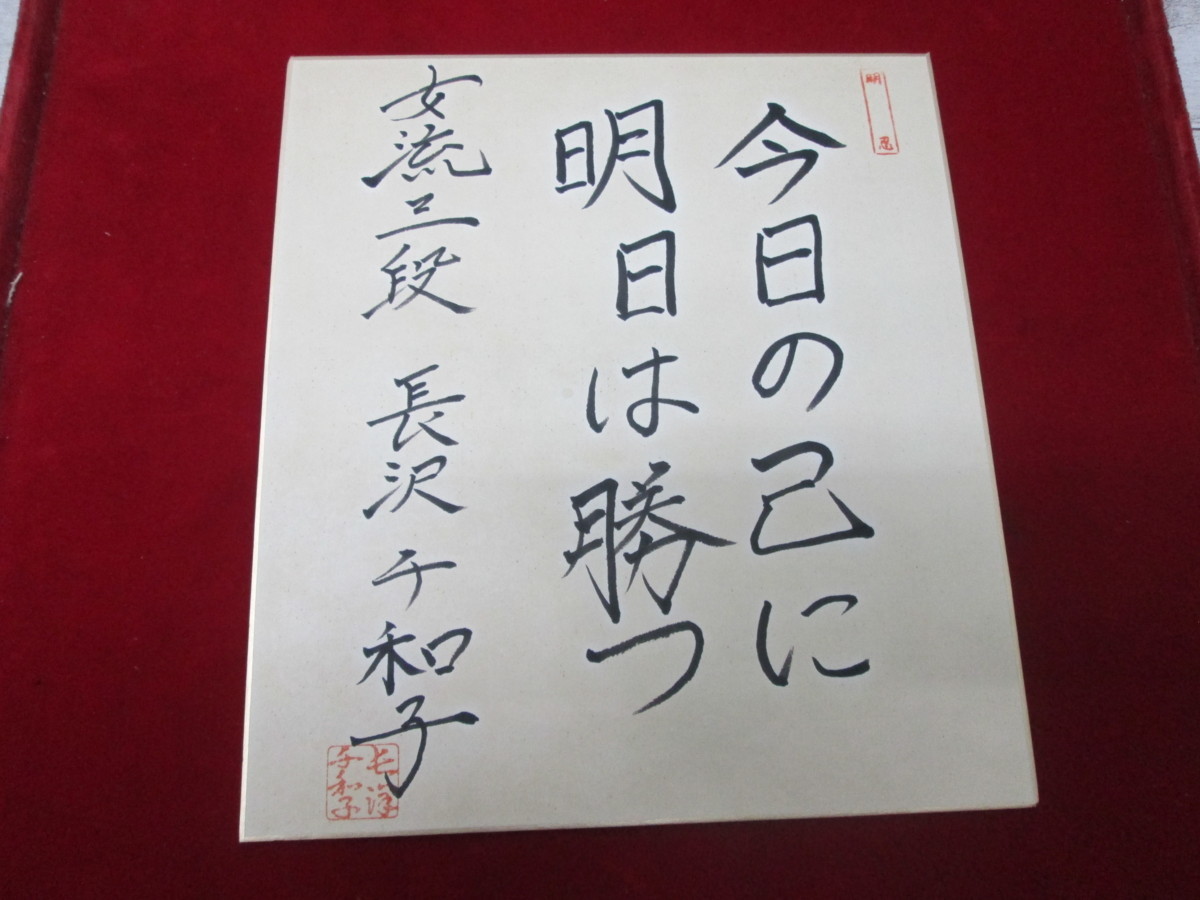 明 忍
今日の己に
明日は勝つ
女流三段 長沢千和子
長澤
千和子